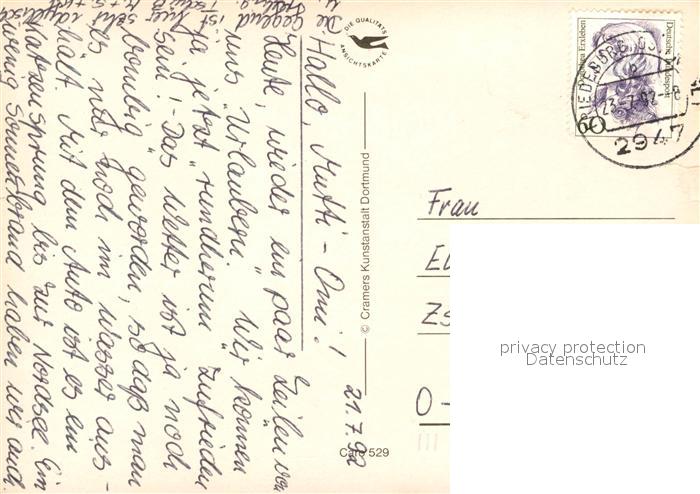 21.7.92
Hallo, Mutti - Omi!
Heute, wieder ein paar Zeilen von
uns "Urlaubern". Wir können
ja jetzt "rundherum" zufrieden
sein! - Das Wetter ist ja noch
bombig geworden, so daß man
es nur noch im Wasser aus-
hält. Mit dem Auto ist es ein
Katzensprung bis zur Nordsee. Ein
wenig Sonnenbrand haben wir auch
Die Gegend ist hier sehr idyllisch
DIE QUALITÄTS
ANSICHTSKARTE
© Cramers Kunstanstalt Dortmund
Care 529
Dorothea Erxleben
Deutsche Bundespost
60
23.-7.92.-8
2947
Frau
El
Zs
O-
privacy protection
Datenschutz